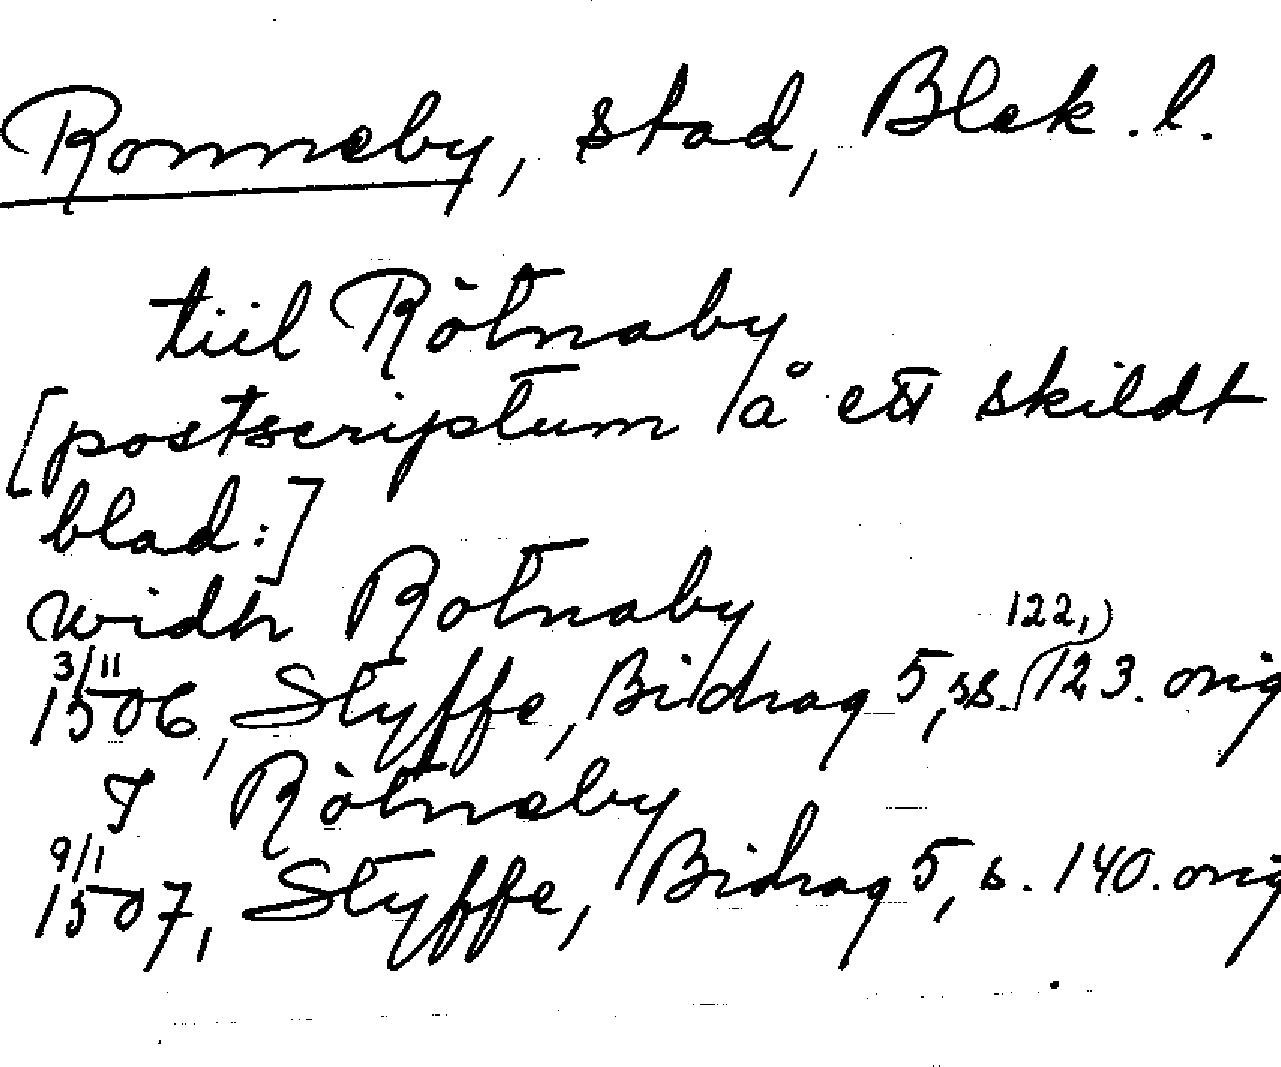 Ronneby, stad, Blek. l.
tiil Rötnaby
[postscriptum å ett skildt
blad:]
widh Rotnaby
3/11 1506, Styffe, Bidrag 5, ss. 122, 123. orig
I Rötneby
9/1 1507, Styffe, Bidrag 5, s. 140. orig